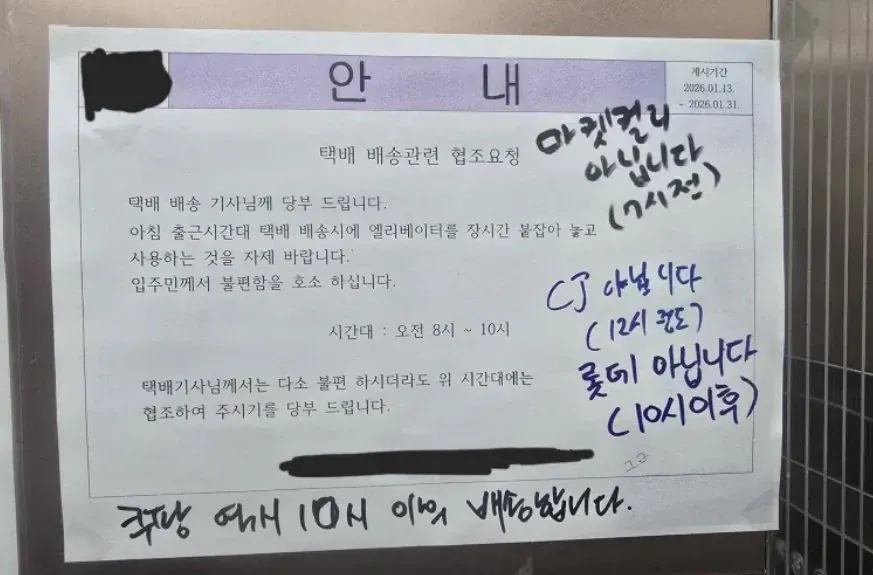 안 내
게시기간
2026.01.13.
~ 2026.01.31.
택배 배송관련 협조요청
마켓컬리
아닙니다
(7시전)
택배 배송 기사님께 당부 드립니다.
아침 출근시간대 택배 배송시에 엘리베이터를 장시간 붙잡아 놓고
사용하는 것을 자제 바랍니다.
입주민께서 불편함을 호소 하십니다.
시간대 : 오전 8시 ~ 10시
CJ 아닙니다
(12시 )
롯데 아닙니다
(10시이후)
택배기사님께서는 다소 불편 하시더라도 위 시간대에는
협조하여 주시기를 당부 드립니다.
쿠팡 역시 10시 배송합니다.